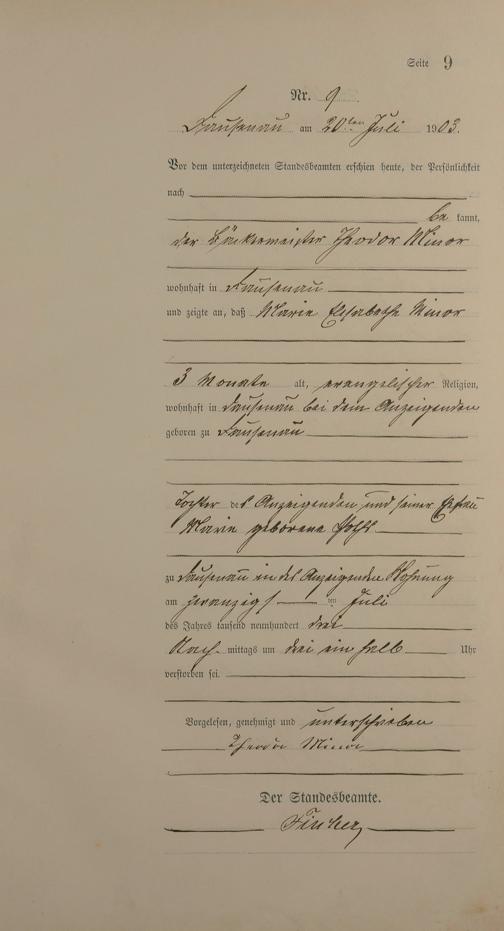 Seite 9
Nr. 9.
Dausenau am 20ten Juli 1903.
Vor dem unterzeichneten Standesbeamten erschien heute, der Persönlichkeit
nach
be kannt,
der Bäckermeister Theodor Minor
wohnhaft in Dausenau
und zeigte an, daß Marie Elisabethe Minor
3 Monate alt, evangelischer Religion,
wohnhaft in Dausenau bei dem Anzeigenden
geboren zu Dausenau
Tochter des Anzeigenden und seiner Ehefrau
Marie geborene
zu Dausenau in des Anzeigenden Wohnung
am zwanzigst ten Juli
des Jahres tausend neunhundert drei
Nach mittags um drei ein halb Uhr
verstorben sei.
Vorgelesen, genehmigt und unterschrieben
Theodor Minor
Der Standesbeamte.